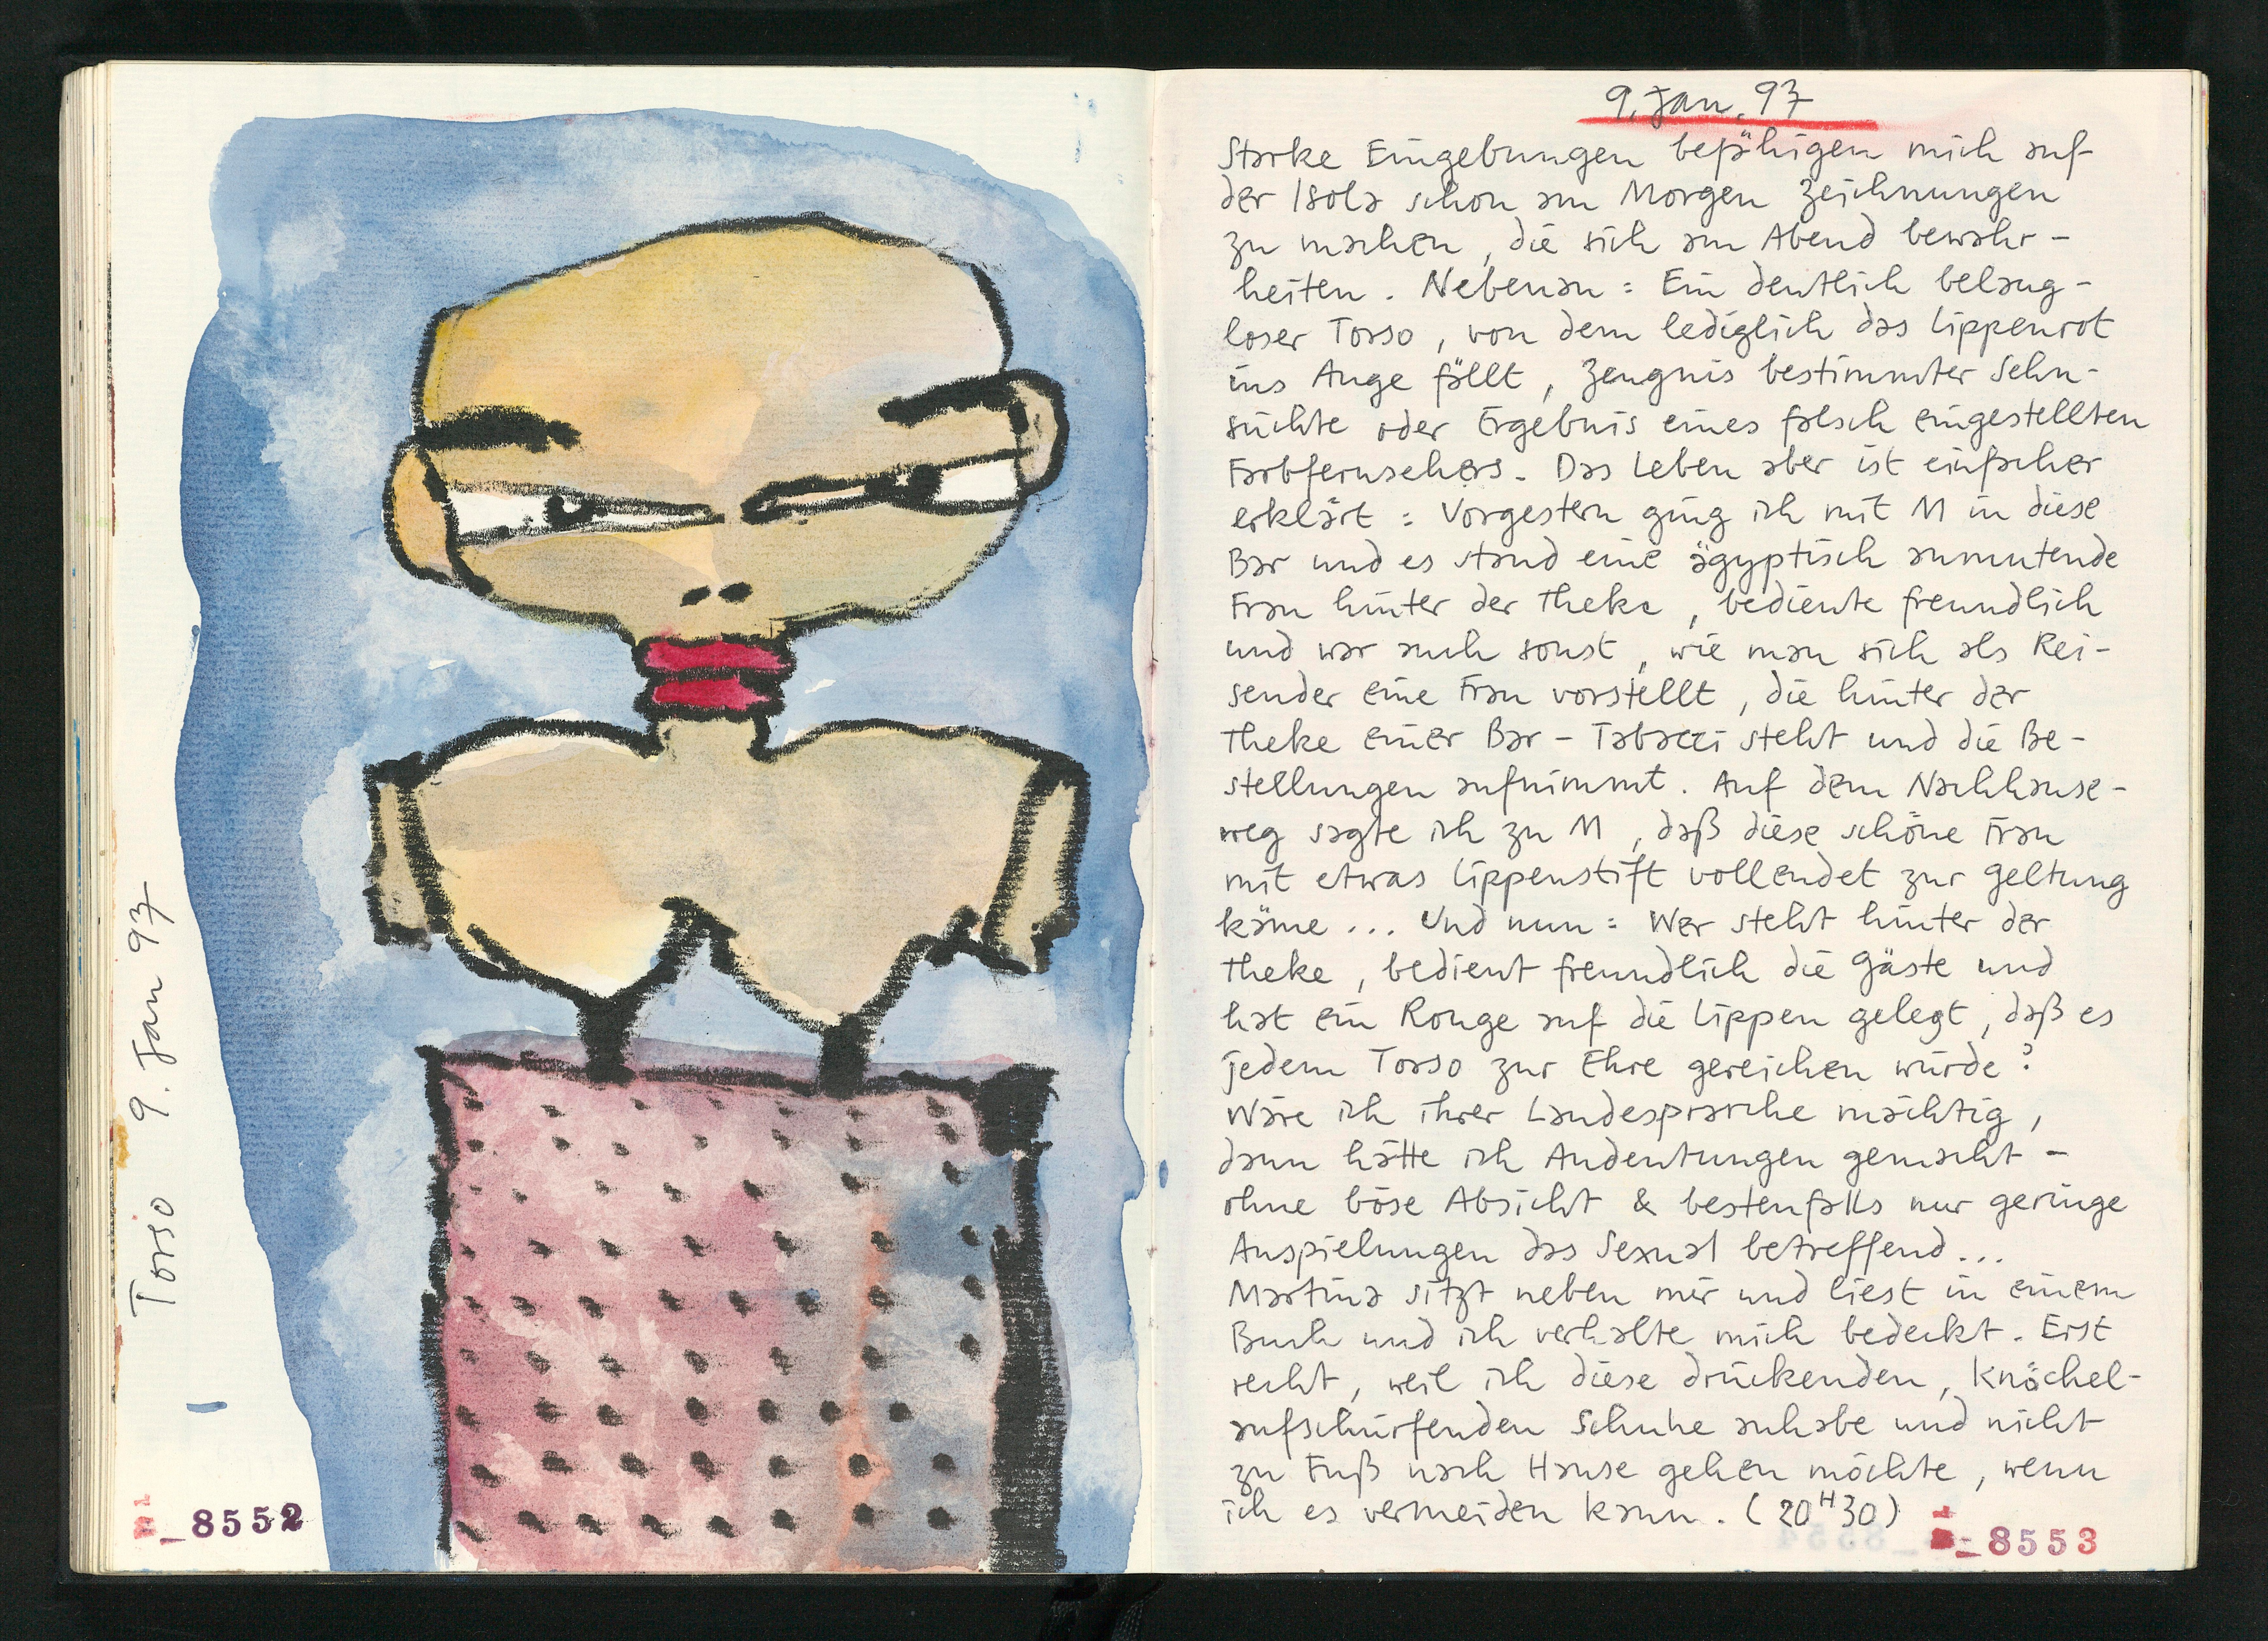 Torso 9. Jan 97
_8552
9. Jan. 97
Starke Eingebungen befähigen mich auf
der Isola schon am Morgen Zeichnungen
zu machen, die sich am Abend bewahr-
heiten. Nebenan: Ein deutlich belang-
loser Torso, von dem lediglich das Lippenrot
ins Auge fällt, Zeugnis bestimmter Sehn-
süchte oder Ergebnis eines falsch eingestellten
Farbfernsehers. Das Leben aber ist einfacher
erklärt: Vorgestern ging ich mit M in diese
Bar und es stand eine ägyptisch anmutende
Frau hinter der Theke, bediente freundlich
und war auch sonst, wie man sich als Rei-
sender eine Frau vorstellt, die hinter der
Theke einer Bar-Tabacci steht und die Be-
stellungen aufnimmt. Auf dem Nachhause-
weg sagte ich zu M, daß diese schöne Frau
mit etwas Lippenstift vollendet zur Geltung
käme... Und nun: Wer steht hinter der
Theke, bedient freundlich die Gäste und
hat ein Rouge auf die Lippen gelegt, daß es
jedem Torso zur Ehre gereichen würde?
Wäre ich ihrer Landesprarche mächtig,
dann hätte ich Andeutungen gemacht –
ohne böse Absicht & bestenfalls nur geringe
Anspielungen das Sexual betreffend...
Martina sitzt neben mir und liest in einem
Buch und ich verhalte mich bedeckt. Erst
recht, weil ich diese drückenden, knöchel-
aufschürfenden Schuhe anhabe und nicht
zu Fuß nach Hause gehen möchte, wenn
ich es vermeiden kann. (20H30)
_8553